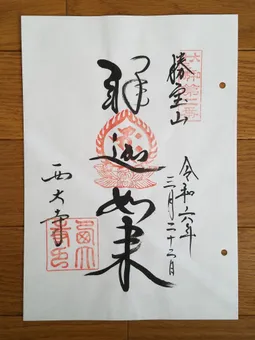 勝宝山
令和六年
三月二十二日
釈迦如来
西大寺